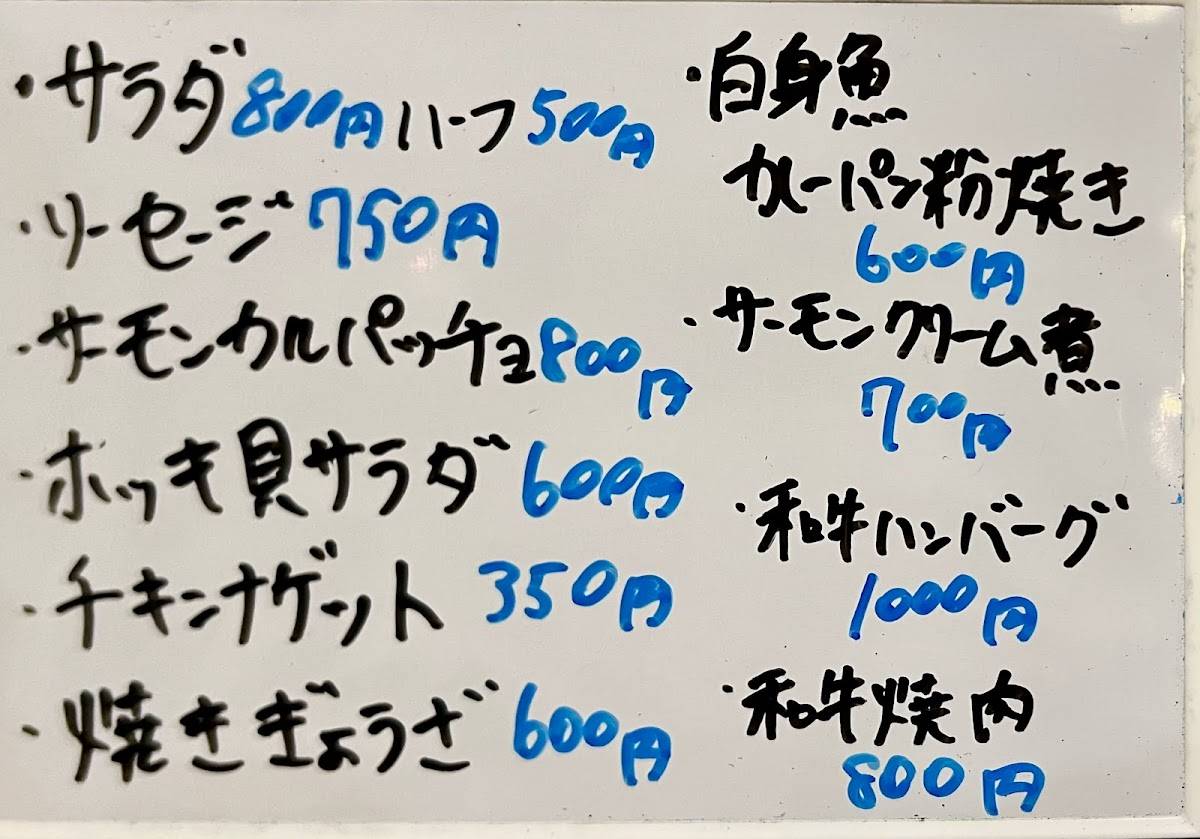 ・サラダ800円ハーフ500円
・ソーセージ750円
・サーモンカルパッチョ800円
・ホッキ貝サラダ600円
・チキンナゲット 350円
・焼きぎょうざ 600円
・白身魚
カレーパン粉焼き
600円
・サーモンクリーム煮
700円
・和牛ハンバーグ
1000円
・和牛焼肉
800円